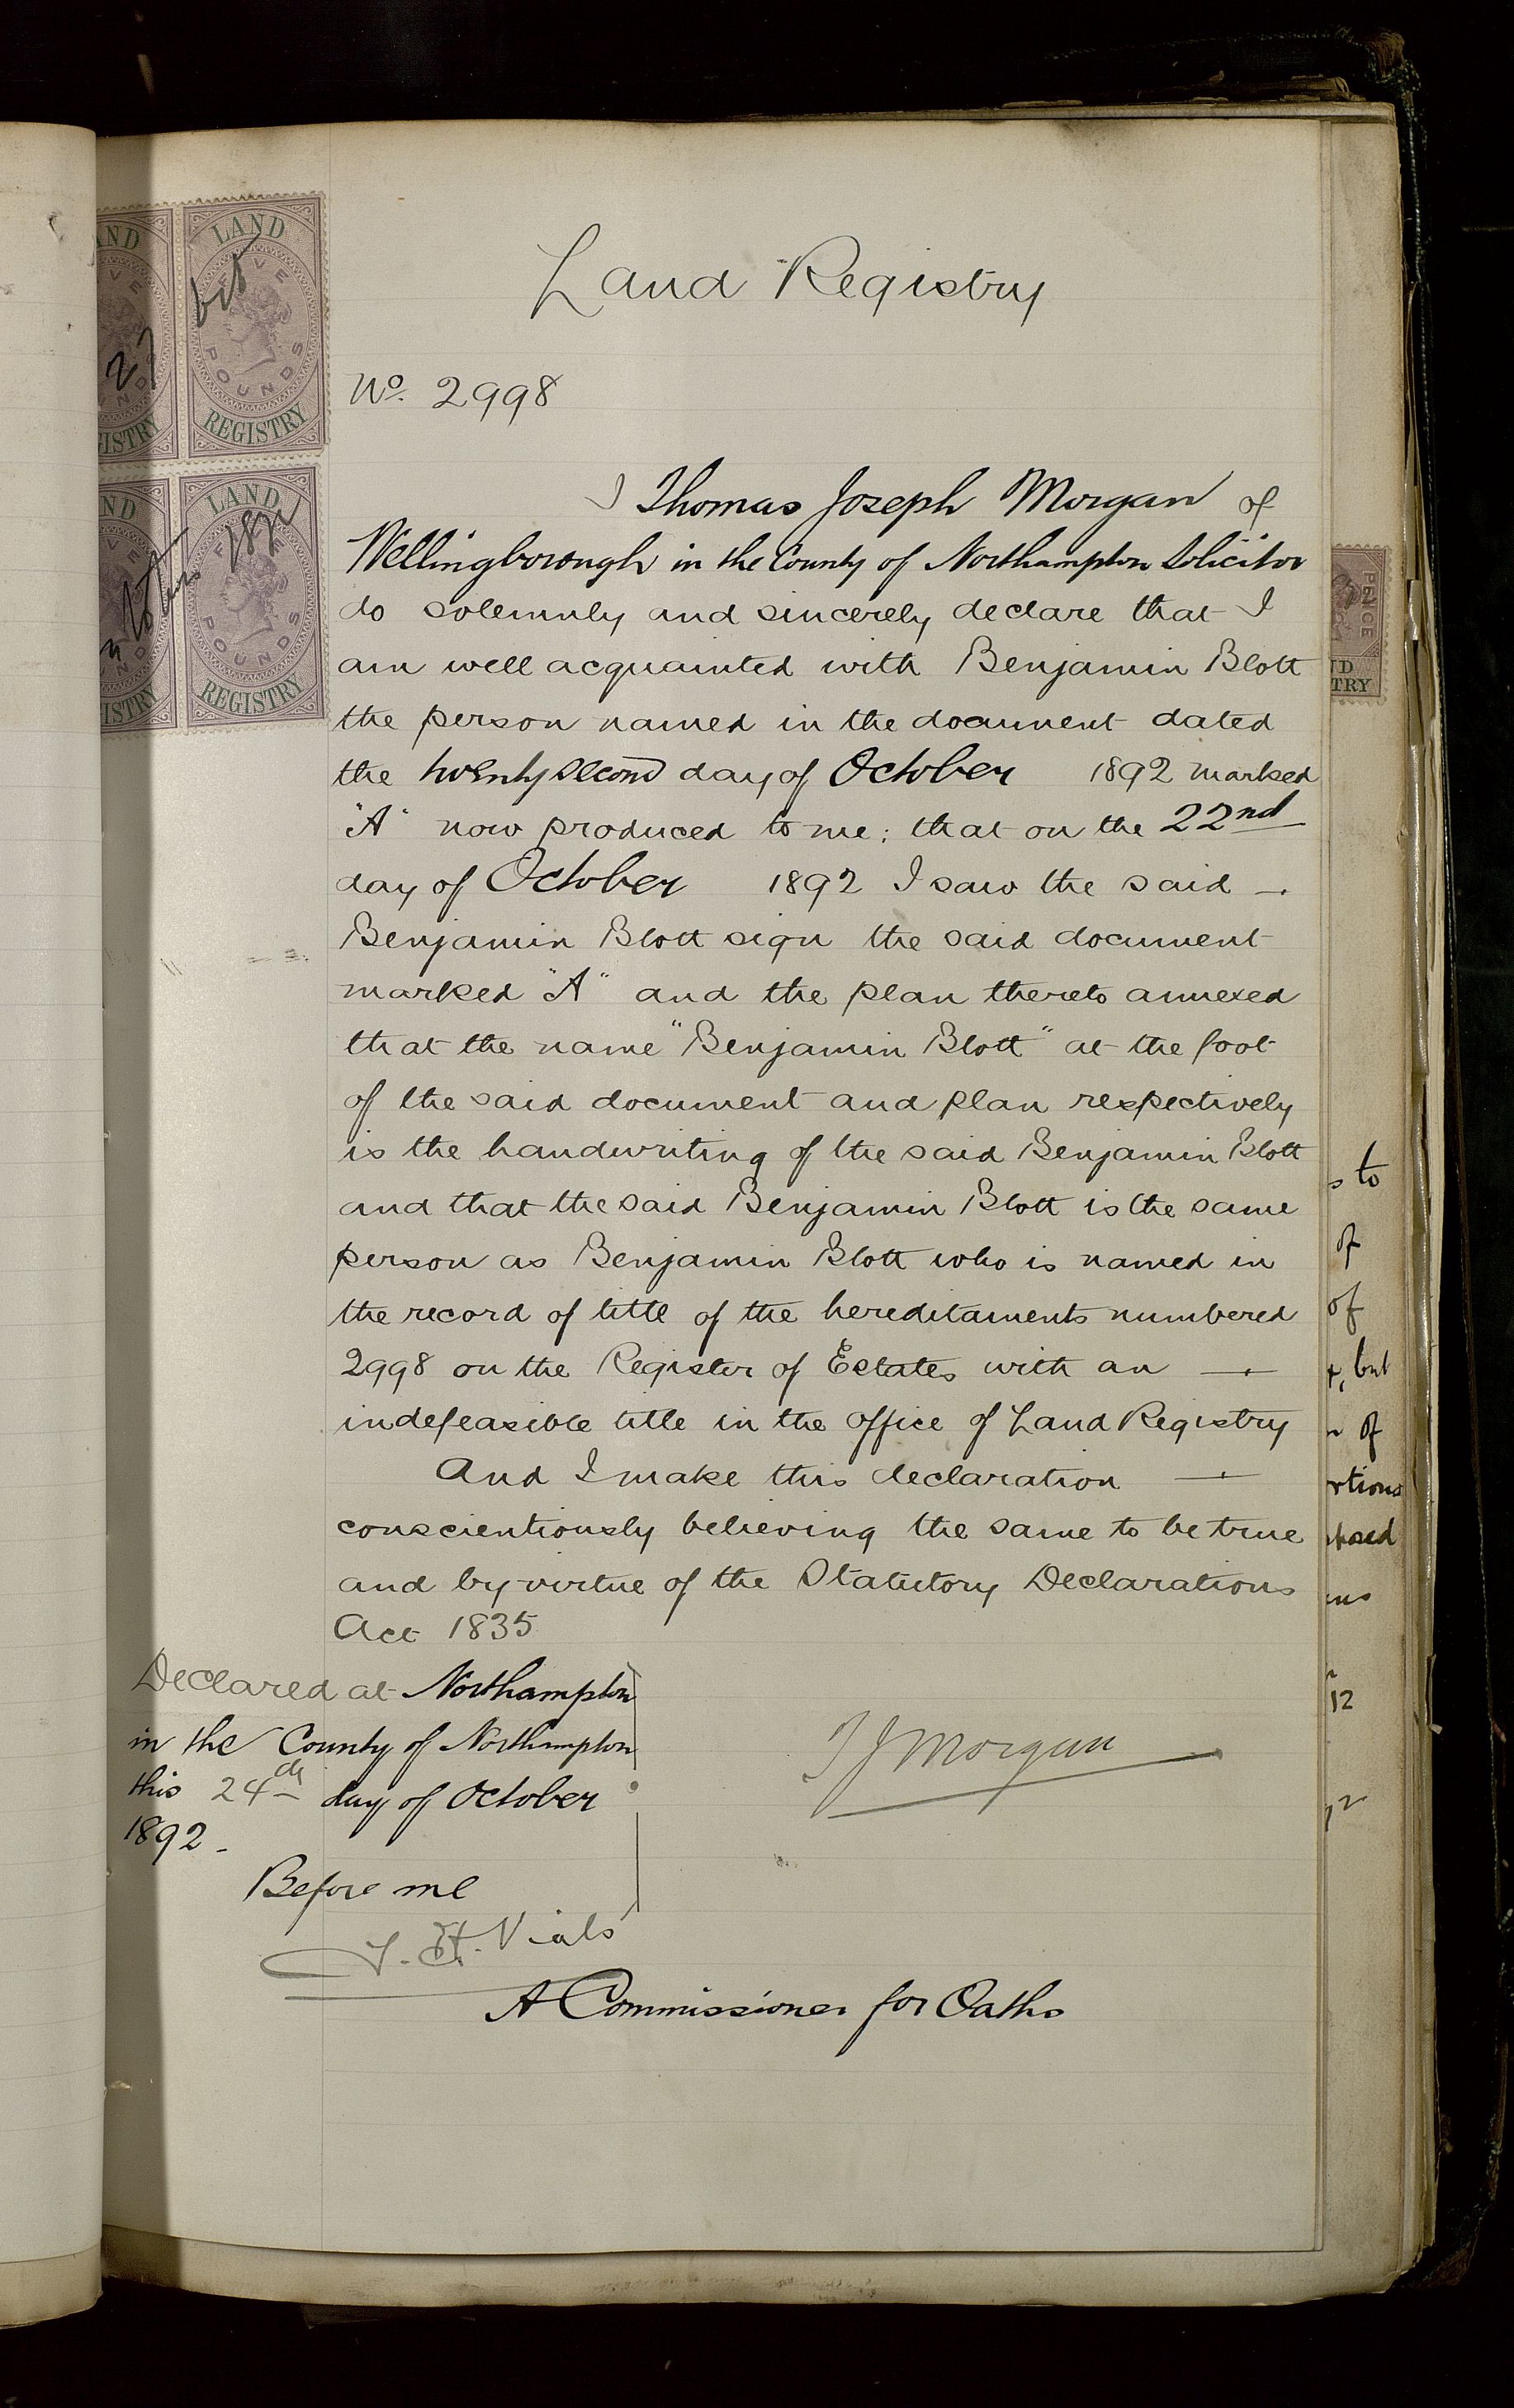 Land Registry
No. 2998
I Thomas Joseph Morgan of
Wellingborough in the County of Northampton Solicitor
do solemnly and sincerely declare that I
am well acquainted with Benjamin Blott
the person named in the document dated
the twenty second day of October 1892 marked
"A" now produced to me; that on the 22nd
day of October 1892 I saw the said —
Benjamin Blott sign the said document
marked "A" and the plan thereto annexed
that the name "Benjamin Blott" at the foot
of the said document and plan respectively
is the handwriting of the said Benjamin Blott
and that the said Benjamin Blott is the same
person as Benjamin Blott who is named in
the record of title of the hereditaments numbered
2998 on the Register of Estates with an —
indefeasible title in the Office of Land Registry
And I make this declaration —
conscientiously believing the same to be true
and by virtue of the Statutory Declarations
Act 1835
Declared at Northampton
in the County of Northampton
this 24th day of October
1892 -
Before me
T J Morgan
Vials
A Commissioner for Oaths
LAND
FIVE
POUNDS
REGISTRY
LAND
FIVE
POUNDS
REGISTRY
PENCE
s to
of
of
, but
of
12